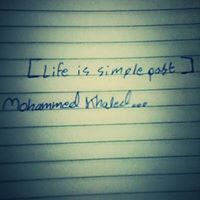 [Life is simple past]
Mohammed Khaled...